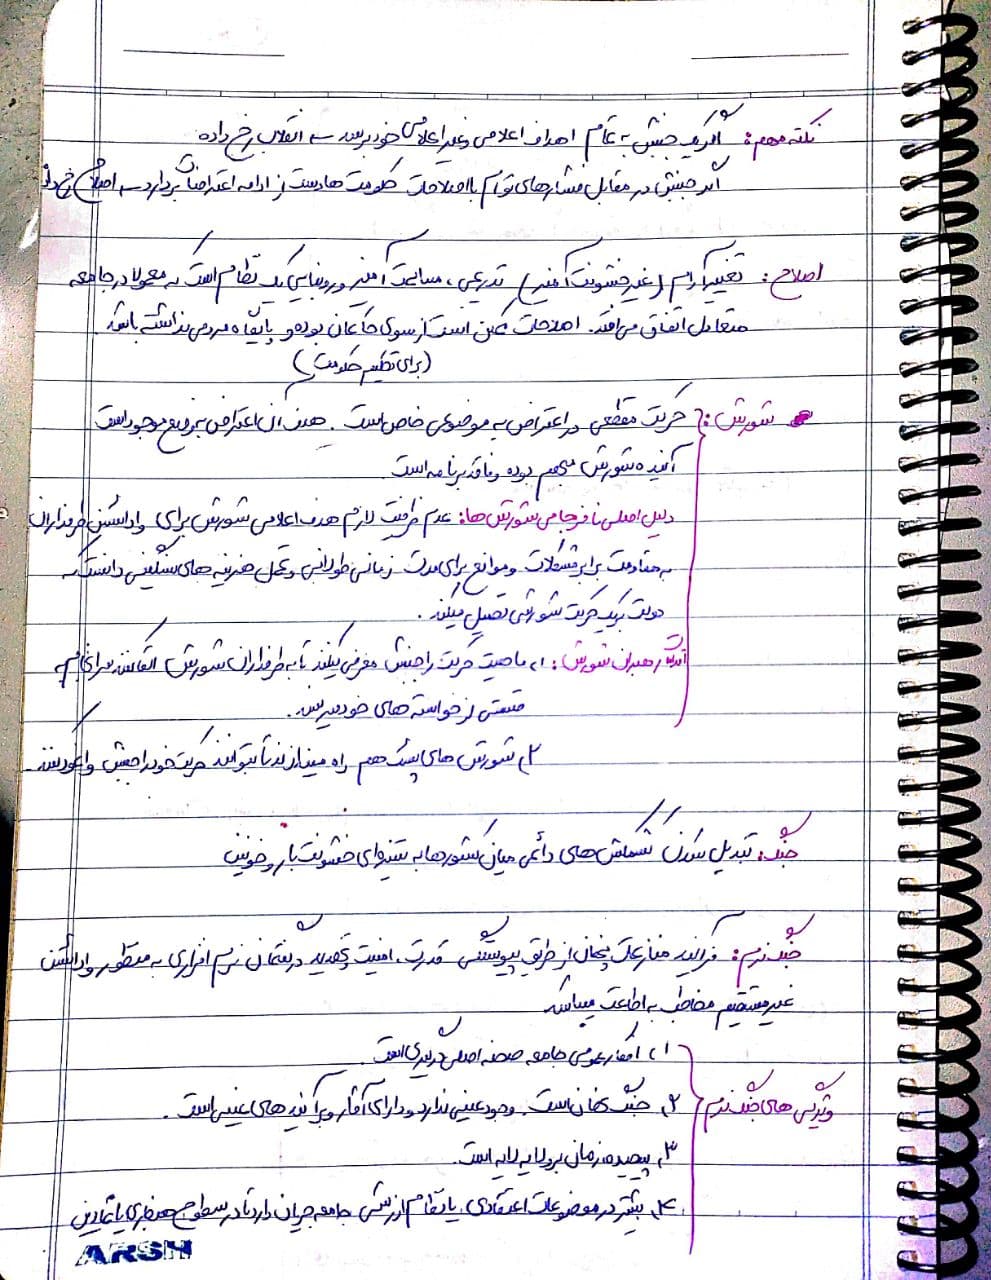 نکته مهم: اگر یک جنبش به تمام اهداف اعلامی و غیر اعلامی خود برسد ← انقلاب رخ داده
اگر جنبش در مقابل فشارهای توام با اصلاحات حکومت ها دست از ادامه اعتراضات بردارد ← اصلاح رخ داد
اصلاح: تغییر آرام (غیر خشونت آمیز) تدریجی، مسالمت آمیز و روبنایی یک نظام است که معمولا در جامعه
متعادل اتفاق می افتد. اصلاحات ممکن است از سوی حاکمان بوده و پایگاه مردمی نداشته باشد
(برای تحکیم حکومت)
شورش: حرکت مقطعی در اعتراض به موضوعی خاص است. هدف آن اعتراض به وضع موجود است
آینده شورش مبهم بوده و فاقد برنامه است.
دلیل اصلی نافرجامی شورش ها: عدم ظرفیت لازم هدف اعلامی شورش برای واداشتن طرفداران
به مقاومت برابر مشکلات و موانع برای مدت زمانی طولانی و تحمل هزینه های سنگینی دانست که
دولت بر یک حرکت شورشی تحمیل میکند.
رهبران شورش: ۱، ماهیت حرکت را جنبش معرفی میکنند تا به طرفداران شورش القا کنند سرانجام به
قسمتی از خواسته های خود میرسند.
۲، شورش های پشت هم راه میندازند تا بتوانند حرکت خود را جنبش وانمود کنند
جنگ: تبدیل شدن کشمکش های دائمی میان کشورها به ستیزه ای خشونت بار و خونین
جنگ نرم: فرآیند منازعات پنهان از طریق پیوستگی قدرت، امنیت و تهدید در گفتمان نرم افزاری به منظور واداشتن
غیر مستقیم مخاطب به اطاعت میباشد
ویژگی های جنگ نرم
۱، افکار عمومی جامعه صحنه اصلی درگیری است.
۲، جنگ نهان است. وجود عینی ندارد و دارای آثار و برآیند های عینی است.
۳، پیچیده، زمان بر و لایه لایه است.
۴، بیشتر در موضوعات اعتقادی، یا نظام ارزشی جامعه جریان دارد تا در سطوح هنجاری یا نمادین
ARSH